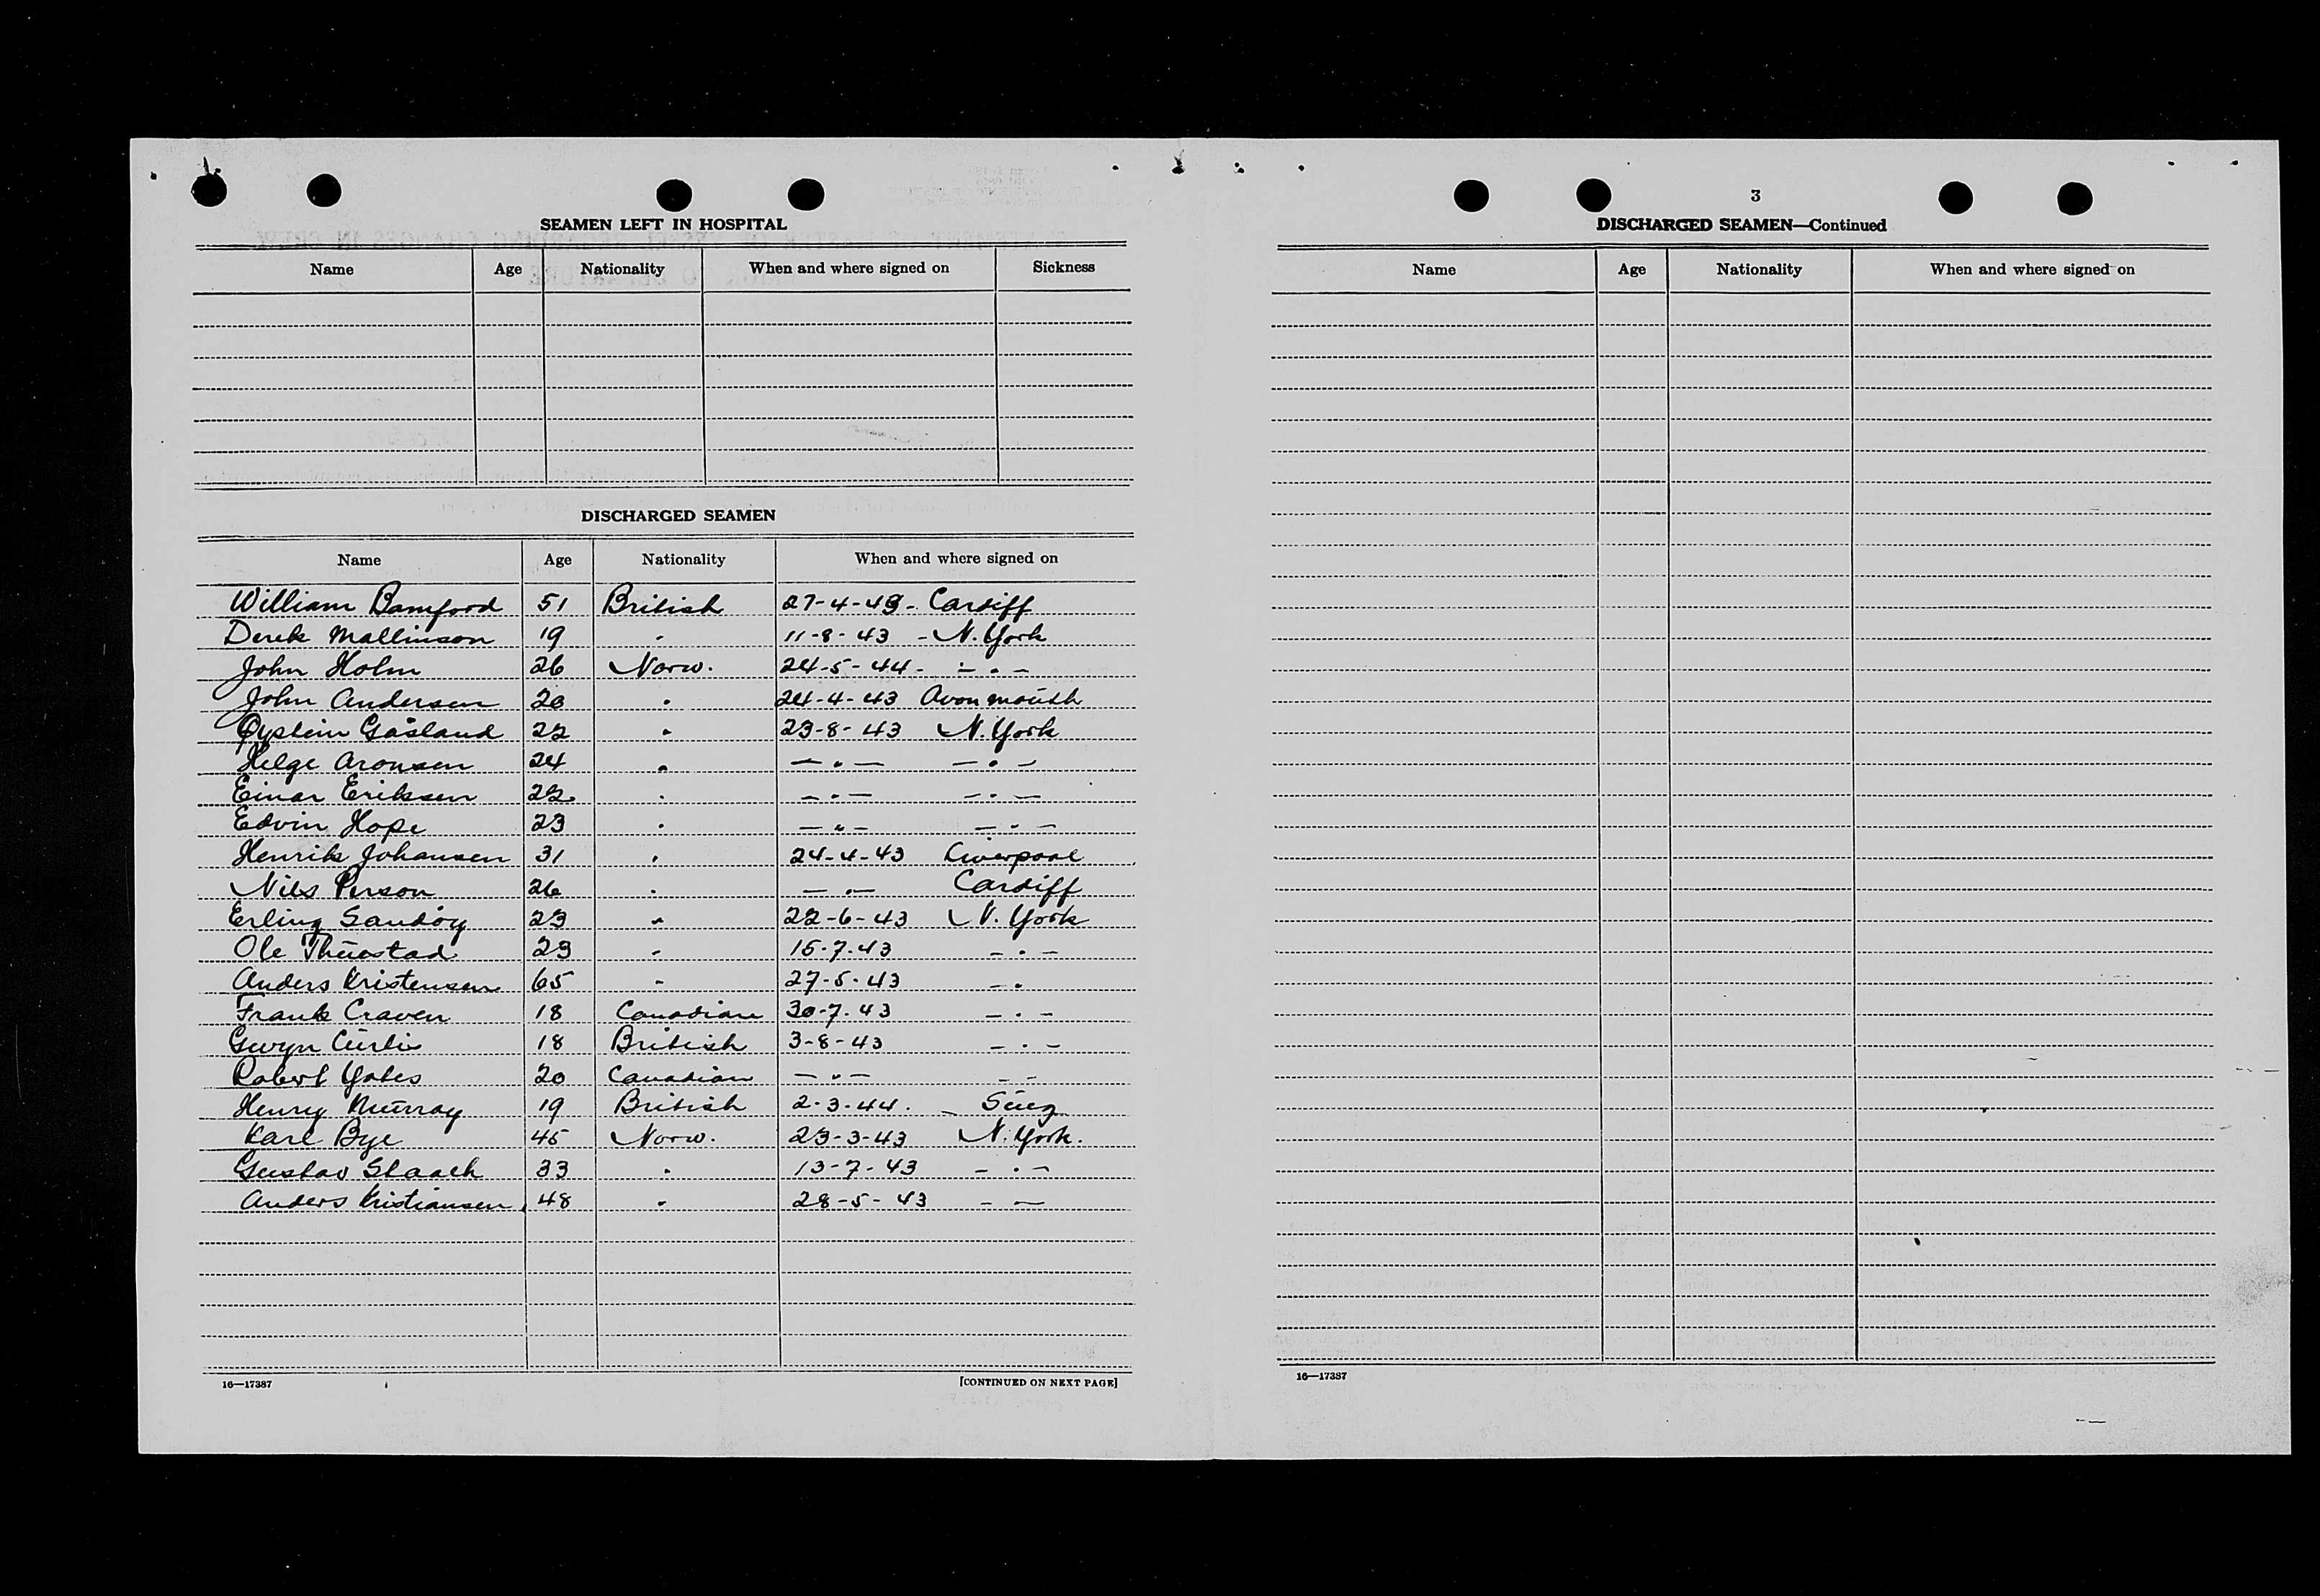 SEAMEN LEFT IN HOSPITAL
Name Age Nationality When and where signed on Sickness
DISCHARGED SEAMEN
Name Age Nationality When and where signed on
William Bamford 51 British 27-4-43 - Cardiff
Derek Mallinson 19 " 11-8-43 - N. York
John Holm 26 Norw. 24-5-44 - — " —
John Andersen 20 " 24-4-43 Avonmouth
Øystein Gåsland 22 " 23-8-43 N. York
Helge Aronsen 24 " — " — — " —
Einar Eriksen 22 " — " — — " —
Edvin Hope 23 " — " — — " —
Henrik Johansen 31 " 24-4-43 Liverpool
Nils Person 26 " — " — Cardiff
Erling Sandöy 23 " 22-6-43 N. York
Ole 23 " 15-7-43 — " —
Anders Kristensen 65 " 27-5-43 — "
Frank Craven 18 Canadian 30-7-43 — " —
Gwyn 18 British 3-8-43 — " —
Robert Yates 20 Canadian — " — — —
Henry Murray 19 British 2-3-44. — Suez
Karl Bye 45 Norw. 23-3-43 N. York.
Gustav Staack 33 " 13-7-43 — " —
Anders Kristiansen 48 " 28-5-43 — —
16—17387 [CONTINUED ON NEXT PAGE]
3
DISCHARGED SEAMEN—Continued
Name Age Nationality When and where signed on
16—17387